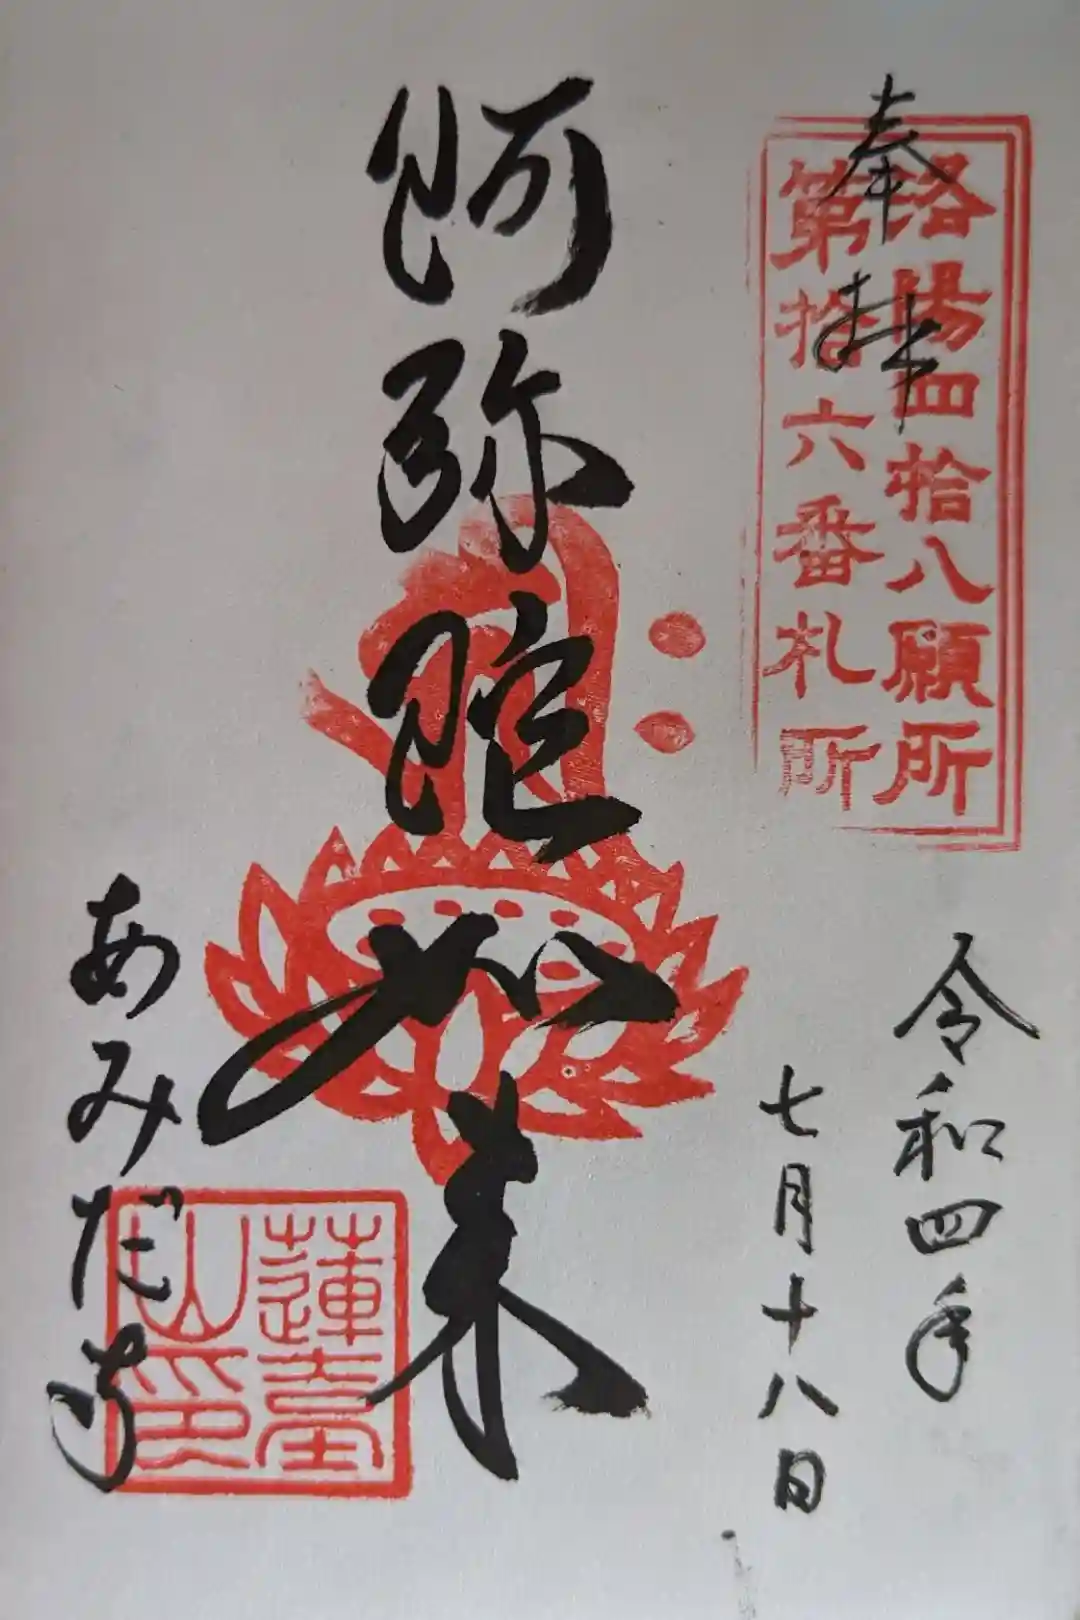 奉拝
洛陽四拾八願所
第拾六番札所
令和四年
七月十八日
阿弥陀如来
あみだ寺
蓮台
山印